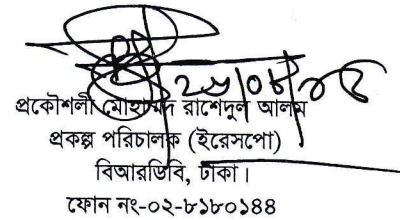 ২৬/০৮/২৫
প্রকৌশলী মোহাম্মদ রাশেদুল আলম
প্রকল্প পরিচালক (ইরেসপো)
বিআরডিবি, ঢাকা।
ফোন নং-০২-৮১৮০১৪৪